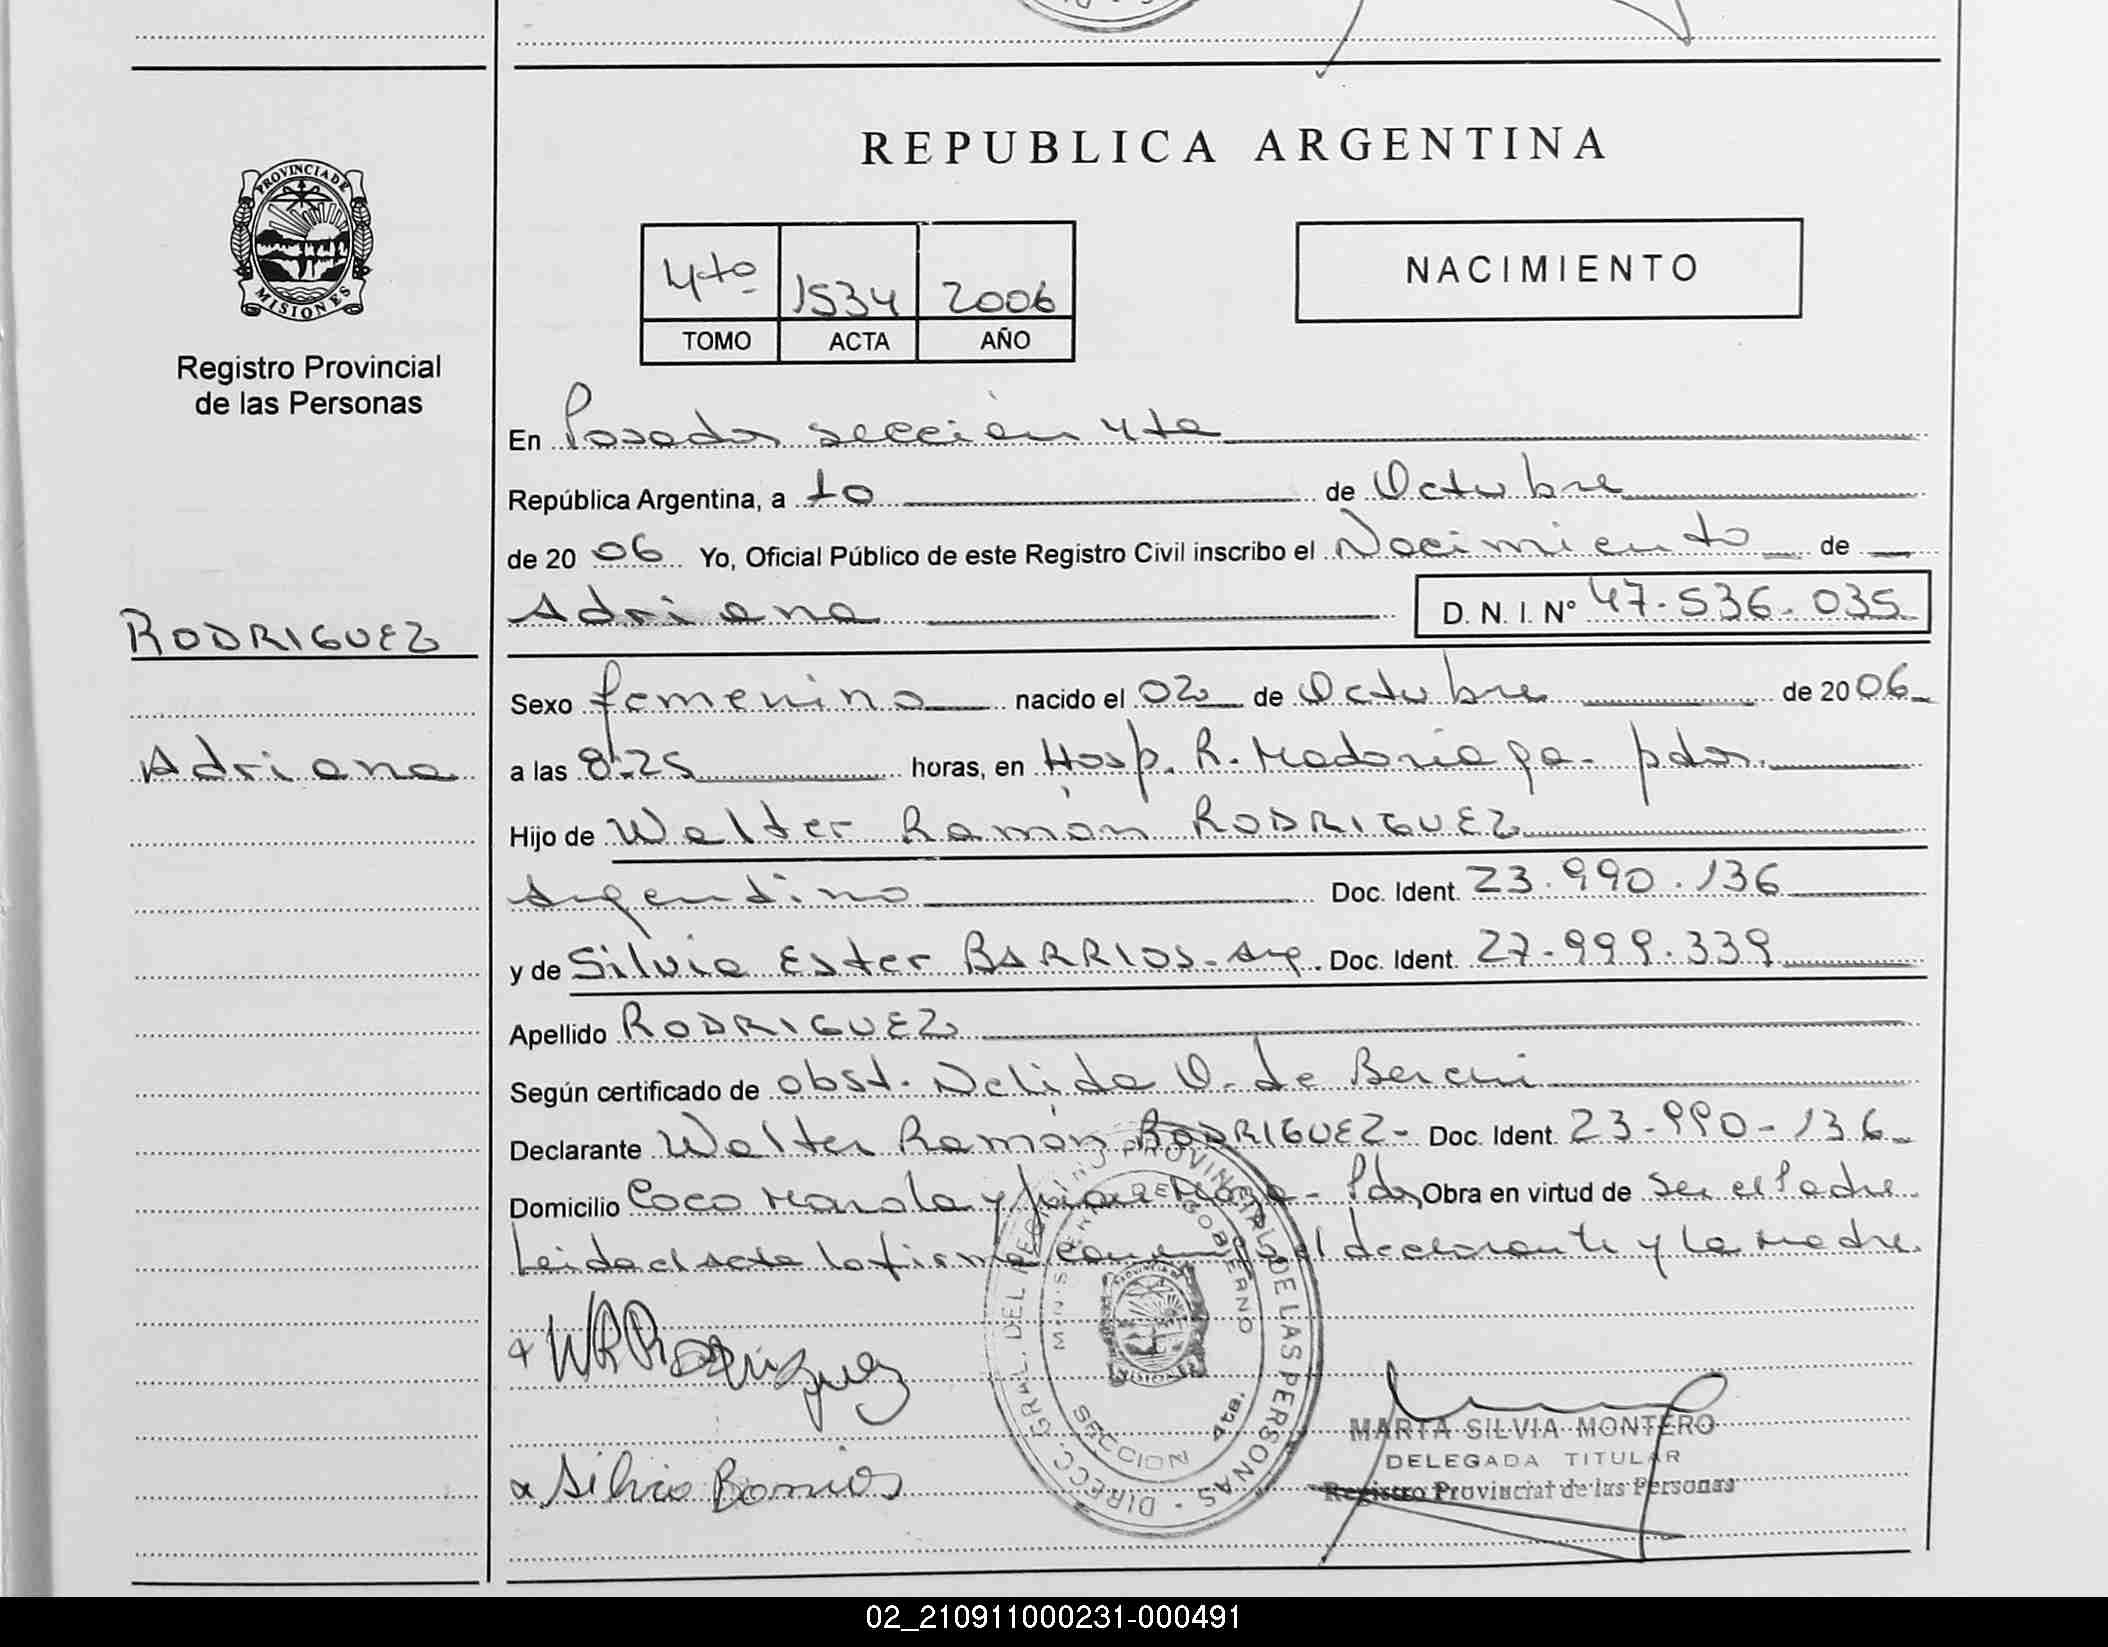 REPUBLICA ARGENTINA
PROVINCIA DE
MISIONES
Registro Provincial
de las Personas
4to 1534 2006
TOMO ACTA AÑO
NACIMIENTO
En Posadas sección 4ta
República Argentina, a 10 de Octubre
de 2006 Yo, Oficial Público de este Registro Civil inscribo el Nacimiento de
Adriana D. N. I. N° 47.536.035
RODRIGUEZ
Adriana
Sexo femenino nacido el 02 de Octubre de 2006
a las 8:25 horas, en Hosp. R. Madariaga - pdas.
Hijo de Walter Ramón RODRIGUEZ
Argentino Doc. Ident. 23.990.136
y de Silvia Ester BARRIOS - Arg. Doc. Ident. 27.999.339
Apellido RODRIGUEZ
Según certificado de obst. Nelida O. de
Declarante Walter Ramón RODRIGUEZ - Doc. Ident. 23-990-136
Domicilio Coco Marola y - Pdas, Obra en virtud de ser el Padre
Leida el acta la firma conmigo el declarante y la Madre.
WRRodriguez
Silvia Barrios
DIRECC. GRAL. DEL REGISTRO PROVINCIAL DE LAS PERSONAS -
MINISTERIO DE GOBIERNO
SECCION 4ta.
MARTA SILVIA MONTERO
DELEGADA TITULAR
Registro Provincial de las Personas
02_210911000231-000491